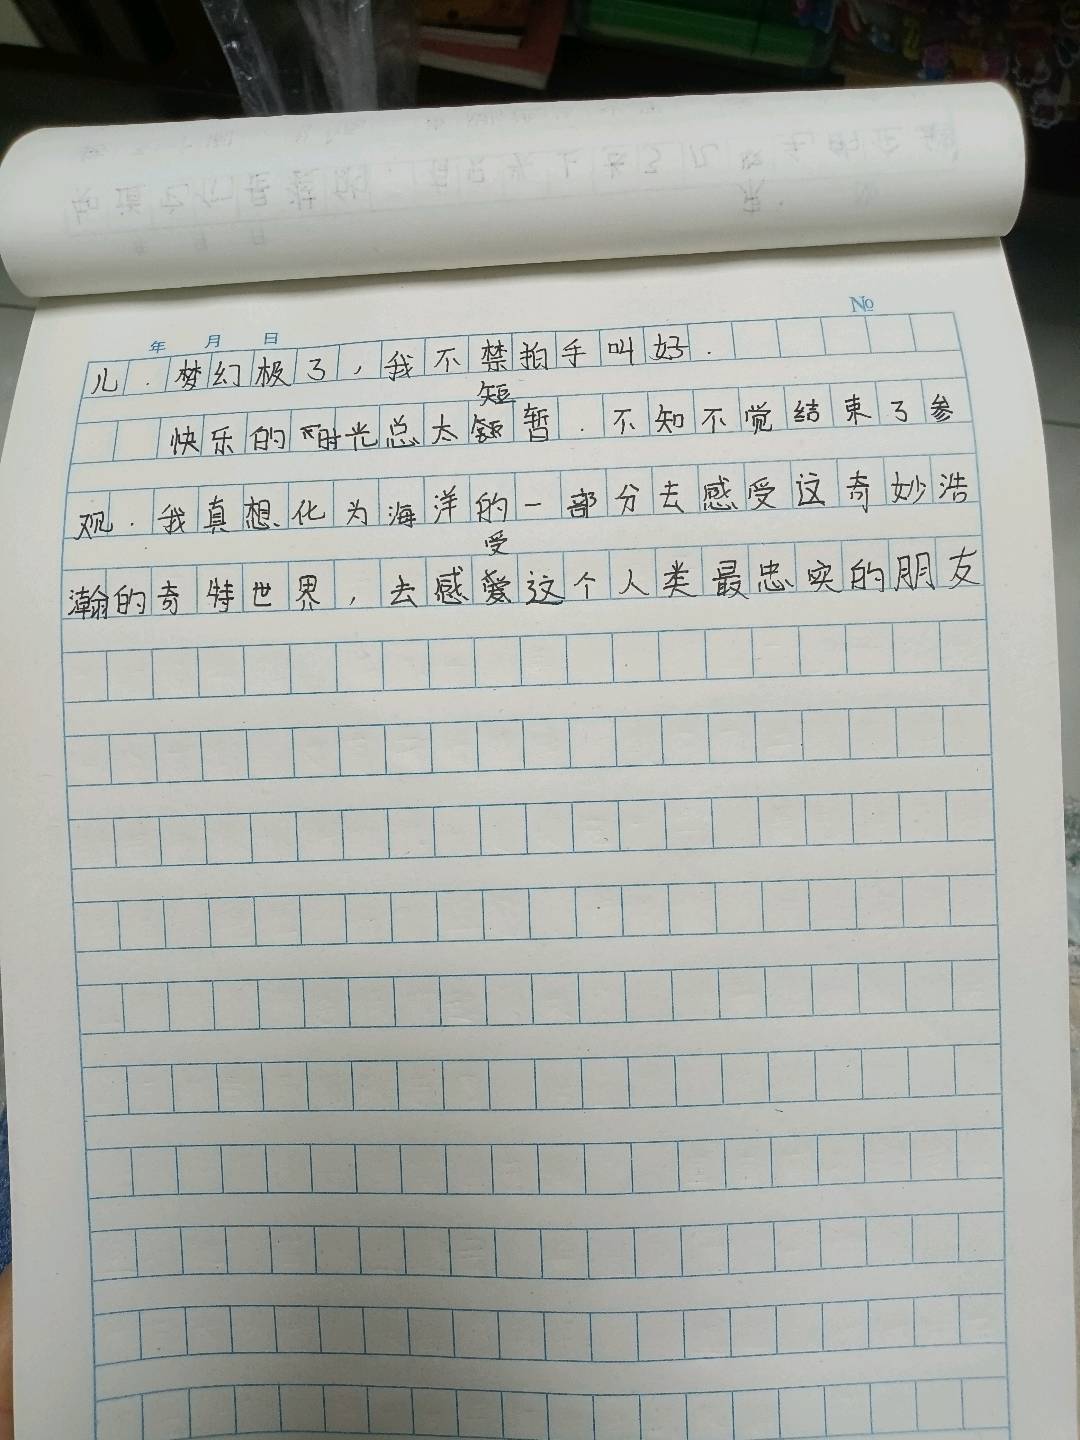 年 月 日 №
儿.梦幻极了,我不禁拍手叫好.
短
快乐的时光总太暂.不知不觉结束了参
观.我真想化为海洋的一部分去感受这奇妙浩
受
瀚的奇特世界,去感爱这个人类最忠实的朋友